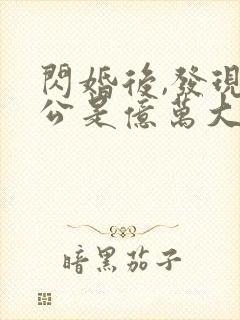 閃婚後,發現
公是億萬大
暗黑茄子